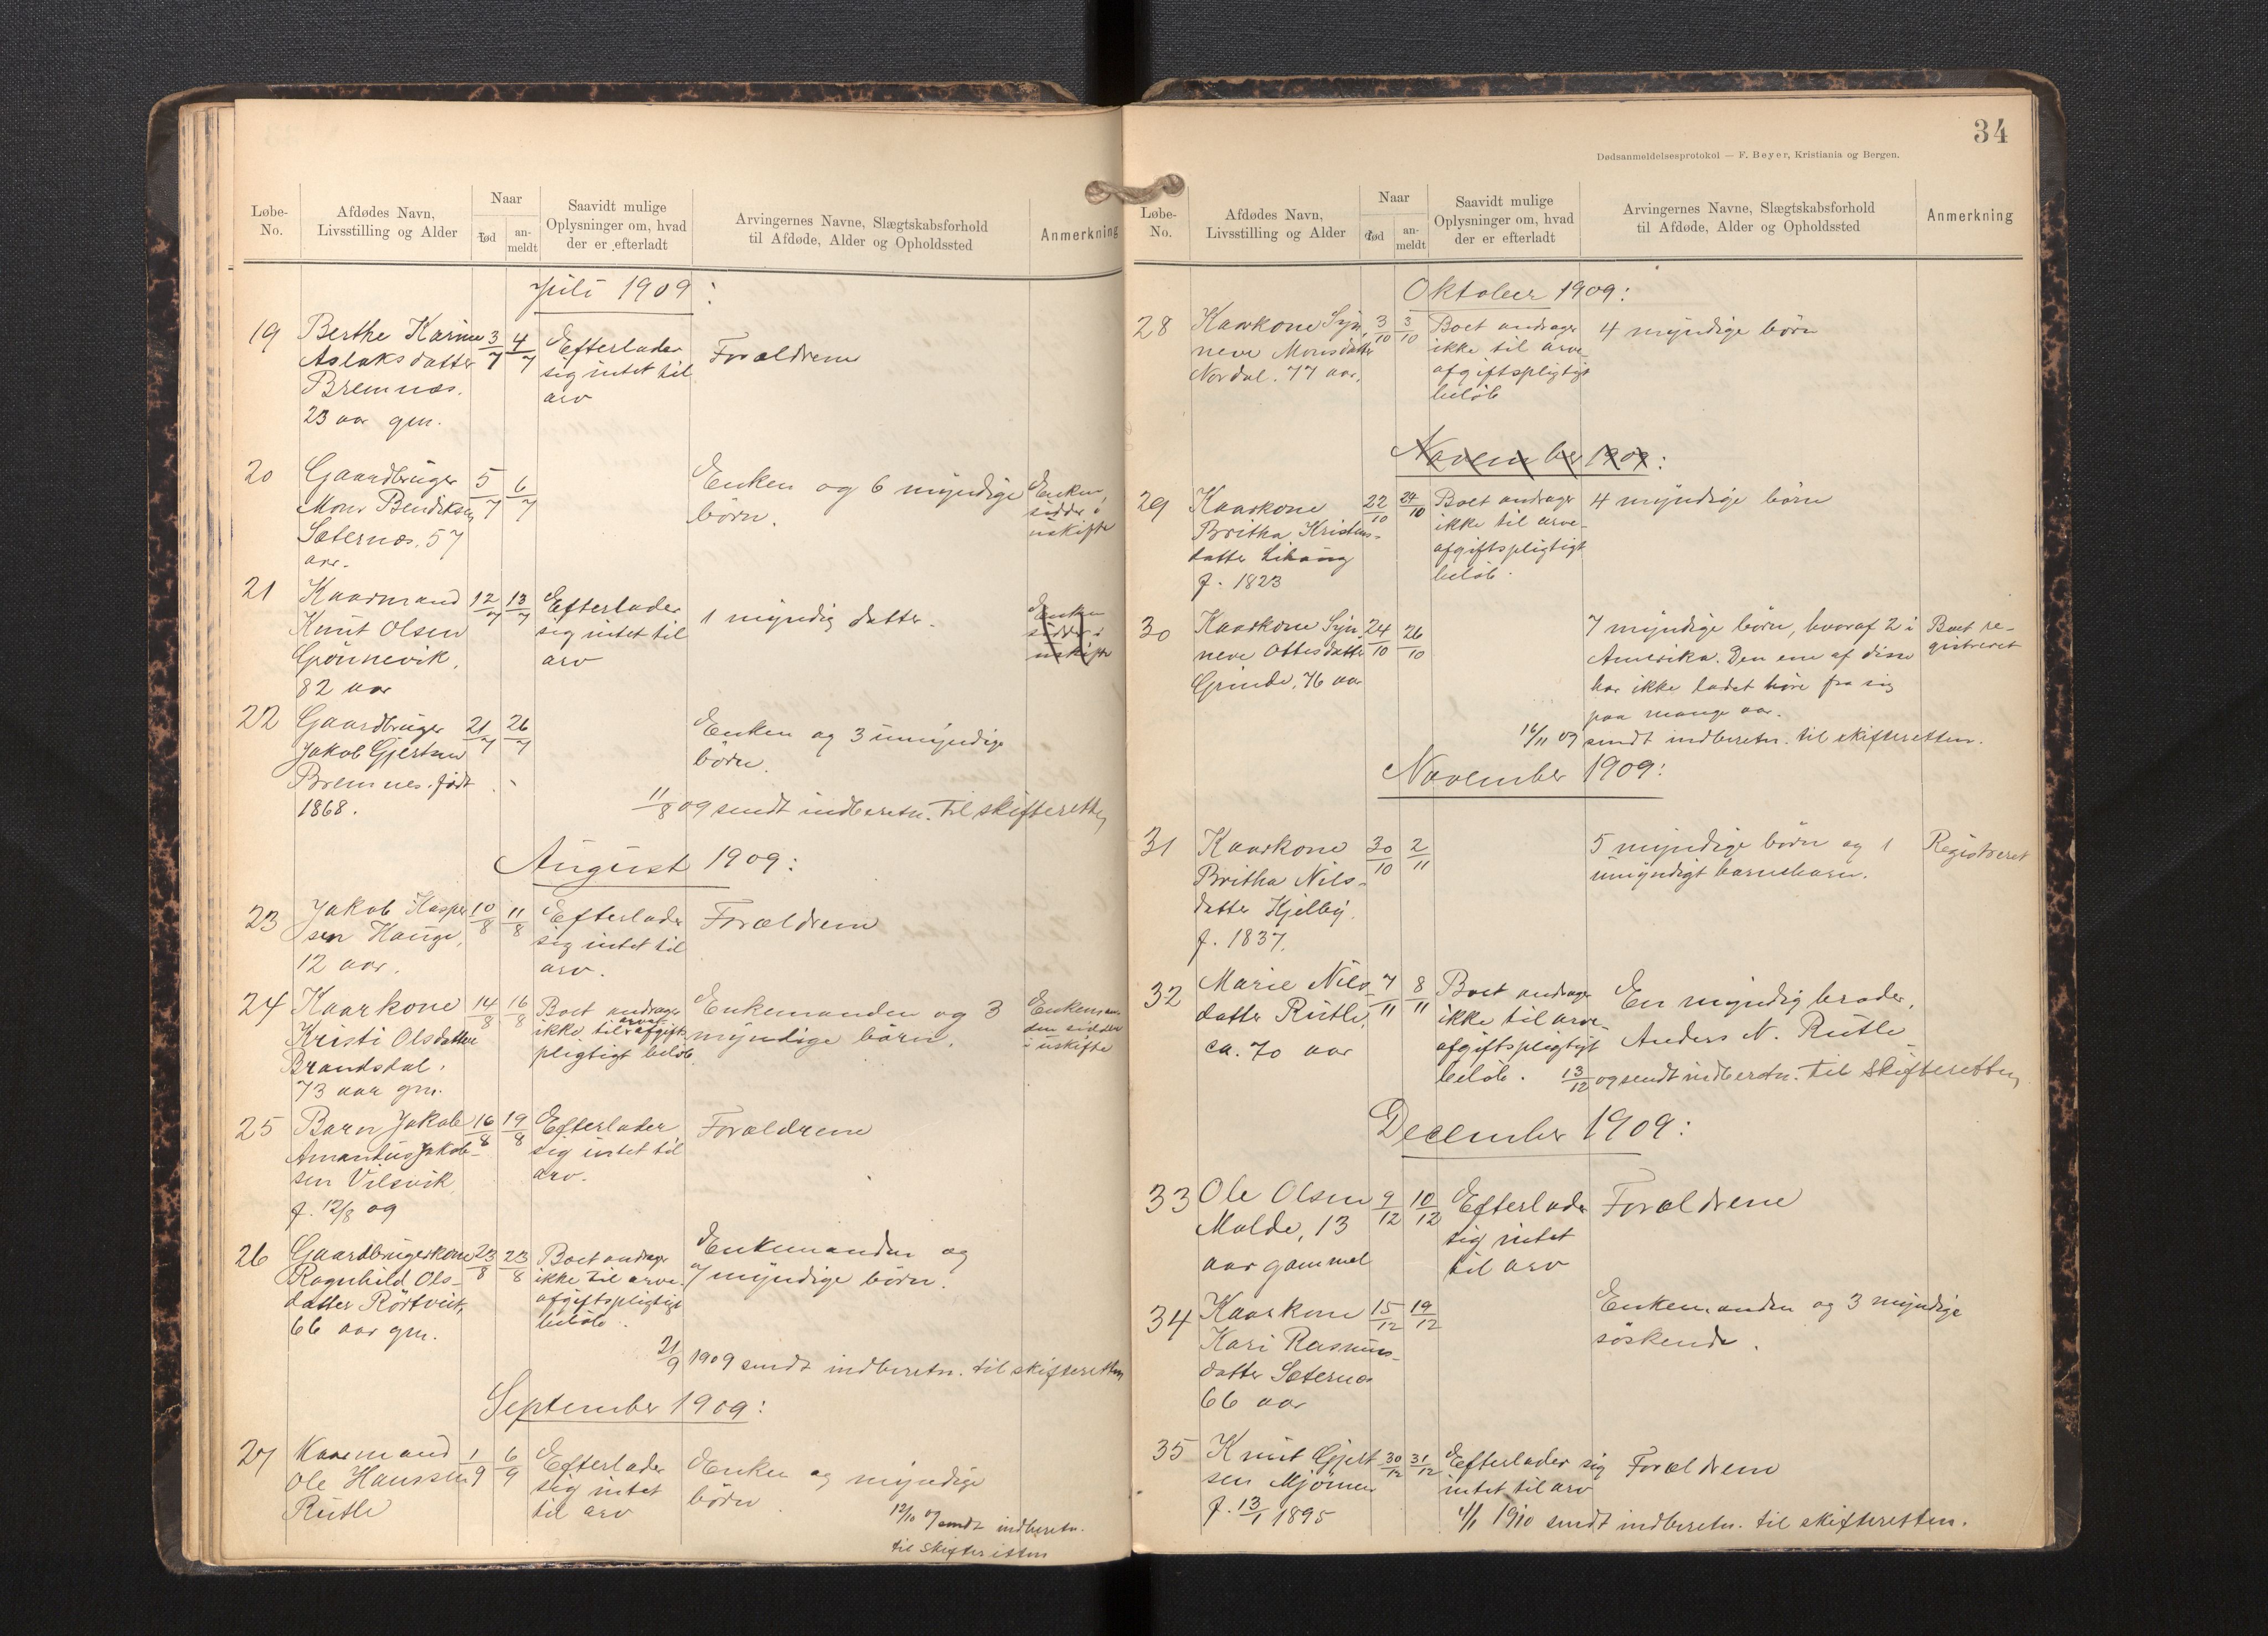 Løbe-No.
Afdødes Navn, Livsstilling og Alder
Naar
død
an-meldt
Saavidt mulige Oplysninger om, hvad der er efterladt
Arvingernes Navne, Slægtskabsforhold til Afdøde, Alder og Opholdssted
Anmerkning
Juli 1909:
19
Berthe Karine
Aslaksdatter
Bremnæs.
23 aar gm.
3/7
4/7
Efterlader
sig intet til
arv
Forældrene
20
Gaardbruger
Mons Bendiksen
Sæternæs. 57
aar.
5/7
6/7
Enken og 6 myndige
børn.
Enken
sidder i
uskifte
21
Kaarmand
Knut Olsen
Grönnevik,
82 aar
12/7
13/7
Efterlader
sig intet til
arv
1 myndig datter.
Enken
sidder i
uskifte
22
Gaardbruger
Jakob Gjertsen
Bremnes. født
1868.
21/7
26/7
Enken og 3 umyndige
børn.
11/8 09 sendt indberetn. til skifteretten
August 1909:
23
Jakob Kasper
sen Hauge,
12 aar.
10/8
11/8
Efterlader
sig intet til
arv.
Forældrene
24
Kaarkone
Kristi Olsdatter
Brandsdal.
73 aar gm.
14/8
16/8
Boet andrager
ikke til arve afgifts
pligtigt beløb
Enkemanden og 3
myndige børn.
Enkeman
den sidder
i uskifte
25
Barn Jakob
Amantus Jakob-
sen Vilsvik
f. 12/8 09
16/8
19/8
Efterlader
sig intet til
arv.
Forældrene
26
Gaardbrugerkone
Ragnhild Ols-
datter Rörtveit,
66 aar gm.
23/8
23/8
Boet andrager
ikke til arve-
afgiftspligtigt
beløb.
Enkemanden og
7 myndige börn.
21/9 1909 sendt indberetn. til skifteretten
September 1909:
27
Kaarmand
Ole Hanssen
Rutle
1/9
6/9
Efterlader
sig intet
til arv
Enken og myndige
börn
12/10 09 sendt indberetn.
til skifteretten
34
Dødsanmeldelsesprotokol — F. Beyer, Kristiania og Bergen.
Løbe-No.
Afdødes Navn, Livsstilling og Alder
Naar
død
an-meldt
Saavidt mulige Oplysninger om, hvad der er efterladt
Arvingernes Navne, Slægtskabsforhold til Afdøde, Alder og Opholdssted
Anmerkning
Oktober 1909:
28
Kaarkone Syn
neve Monsdatter
Nordal. 77 aar.
3/10
3/10
Boet andrager
ikke til arve-
afgiftspligtigt
beløb
4 myndige børn
November 1909:
29
Kaarkone
Britha Kristens-
datter
f. 1823
22/10
24/10
Boet andrager
ikke til arve-
afgiftspligtigt
beløb.
4 myndige børn
30
Kaarkone Syn
neve Ottesdatter
Grinde, 76 aar
24/10
26/10
7 myndige børn, hvoraf 2 i
Amerika. Den ene af disse
har ikke ladet høre fra sig
paa mange aar.
Boet re-
gistreret
16/11 09 sendt indberetn. til skifteretten.
November 1909:
31
Kaarkone
Britha Nils-
datter Kjelby.
f. 1837.
30/10
2/11
5 myndige børn og 1
umyndigt barnebarn.
Registreret
32
Marie Nils
datter Rutle,
ca. 70 aar
7/11
8/11
Boet andrager
ikke til arve-
afgiftspligtigt
beløb.
En myndig broder,
Anders N. Rutle
13/12 09 sendt indberetn. til skifteretten
December 1909:
33
Ole Olsen
Molde, 13
aar gammel
9/12
10/12
Efterlader
sig intet
til arv
Forældrene
34
Kaarkone
Kari Rasmus-
datter Sæternæs
66 aar
15/12
19/12
Enkemanden og 3 myndige
söskende.
35
Knut Gjert
sen Mjömen
f. 13/1 1895
30/12
31/12
Efterlader sig
intet til arv
Forældrene
4/1 1910 sendt indberetn. til skifteretten.